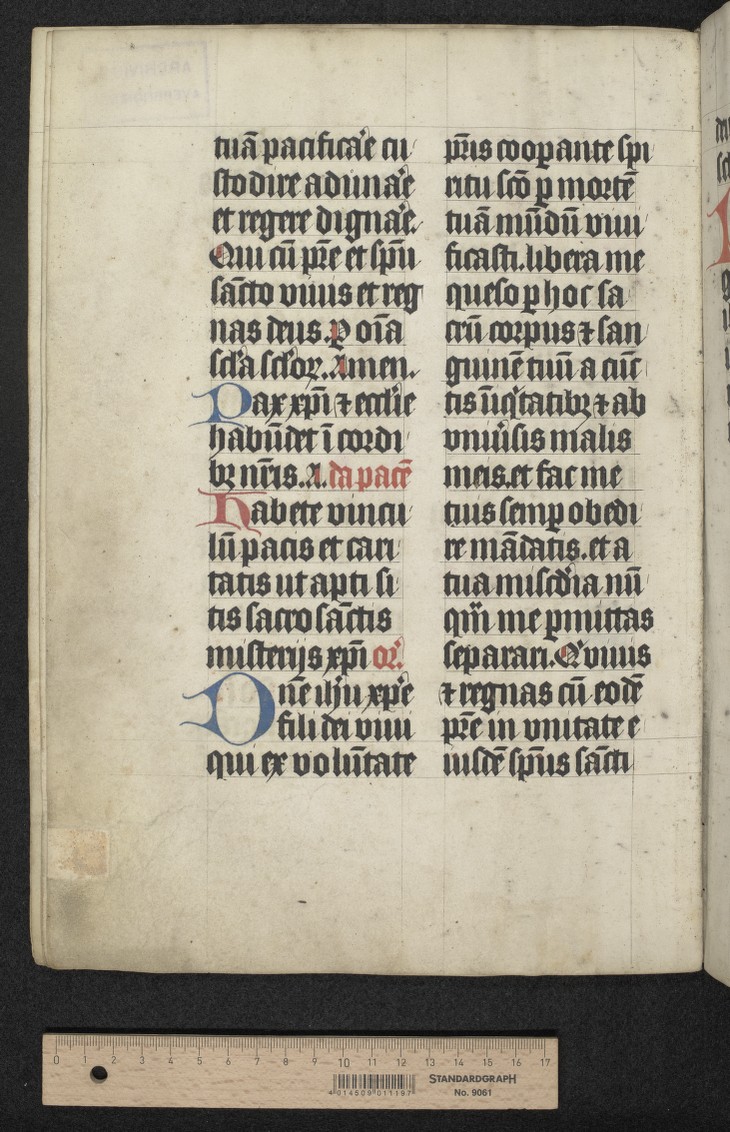 tuā pacificār̄e cu
stodire adunār̄e
et regere dignār̄e.
Qui cū pr̄e et sp̄u
sācto viuis et reg
nas deus. p oīa
scl̄a scl̄oꝝ. Amen.
Pax xp̄i ⁊ eccl̄ie
habūdet ī cordi
bꝫ nr̄is. A. da pacē
Habete vincu
lū pacis et cari
tatis ut apti si
tis sacro sāctis
misterijs xp̄i or̄.
Dn̄e ih̄u xp̄e
fili dei viui
qui ex volūtate
pr̄is coopꝑante spi
ritu scō ꝑ mortē
tuā mūdū viui
ficasti. libera me
queso ꝑ hoc sa
crū corpus ⁊ san
guinē tuū a cūc
tis īiq̄tatibꝫ ⁊ ab
vniūsis malis
meis. et fac me
tuis semꝑ obedi
re mādatis. et a
tua misc̄dia nū
qm̄ me ꝑmittas
separari. Q' viuis
⁊ regnas cū eodē
pr̄e in vnitate e
iusdē sp̄us sācti
0 1 2 3 4 5 6 7 8 9 10 11 12 13 14 15 16 17
STANDARDGRAPH
No. 9061
4 014509 011197